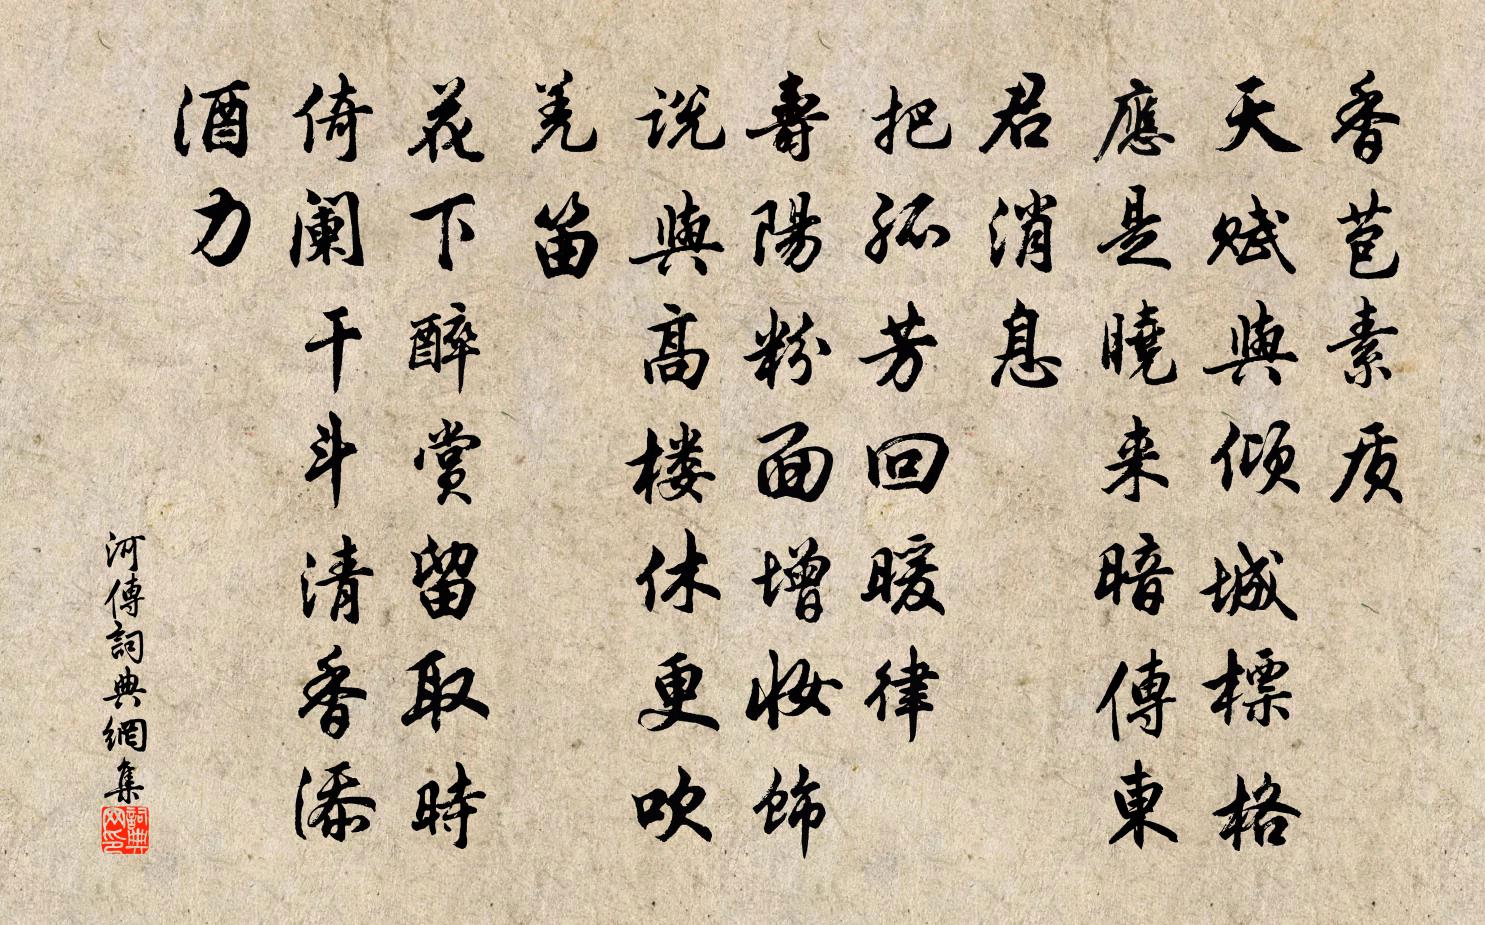 香苞素质
天赋與倾城標格
應是曉来暗傳東
君消息
把孤芳回暖律
壽陽粉面增妝飾
说與高楼休更吹
羌笛
花下醉賞留取時
倚阑干斗清香添
酒力
河傳詞典網集
詞典网印